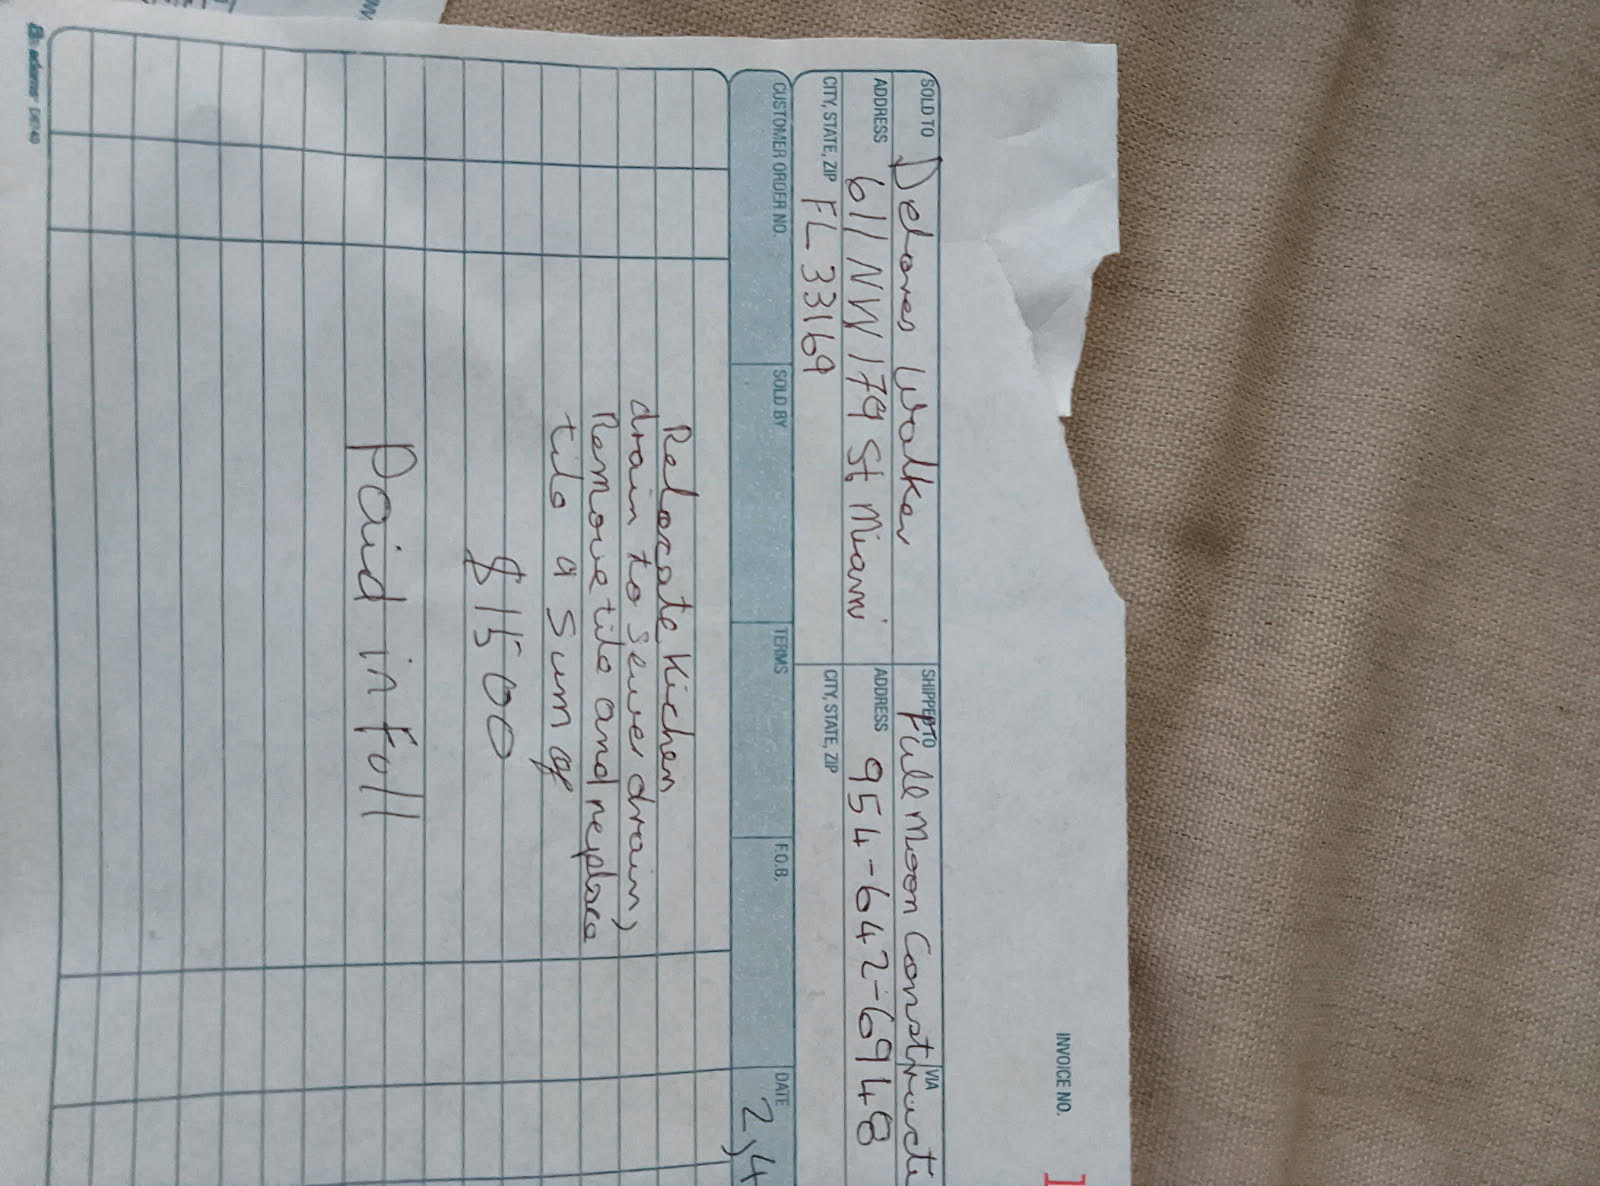 INVOICE NO.
SOLD TO Delores Walker
SHIPPED TO Full Moon Constructi
VIA
ADDRESS 611 NW 179 St. Miami
ADDRESS 954-642-6948
CITY, STATE, ZIP FL 33169
CITY, STATE, ZIP
CUSTOMER ORDER NO. SOLD BY TERMS F.O.B. DATE
2,4
Relocate Kichen
drain to sewer drain,
Remove tile and replace
tile a sum of
$1500
Paid in Full
adams